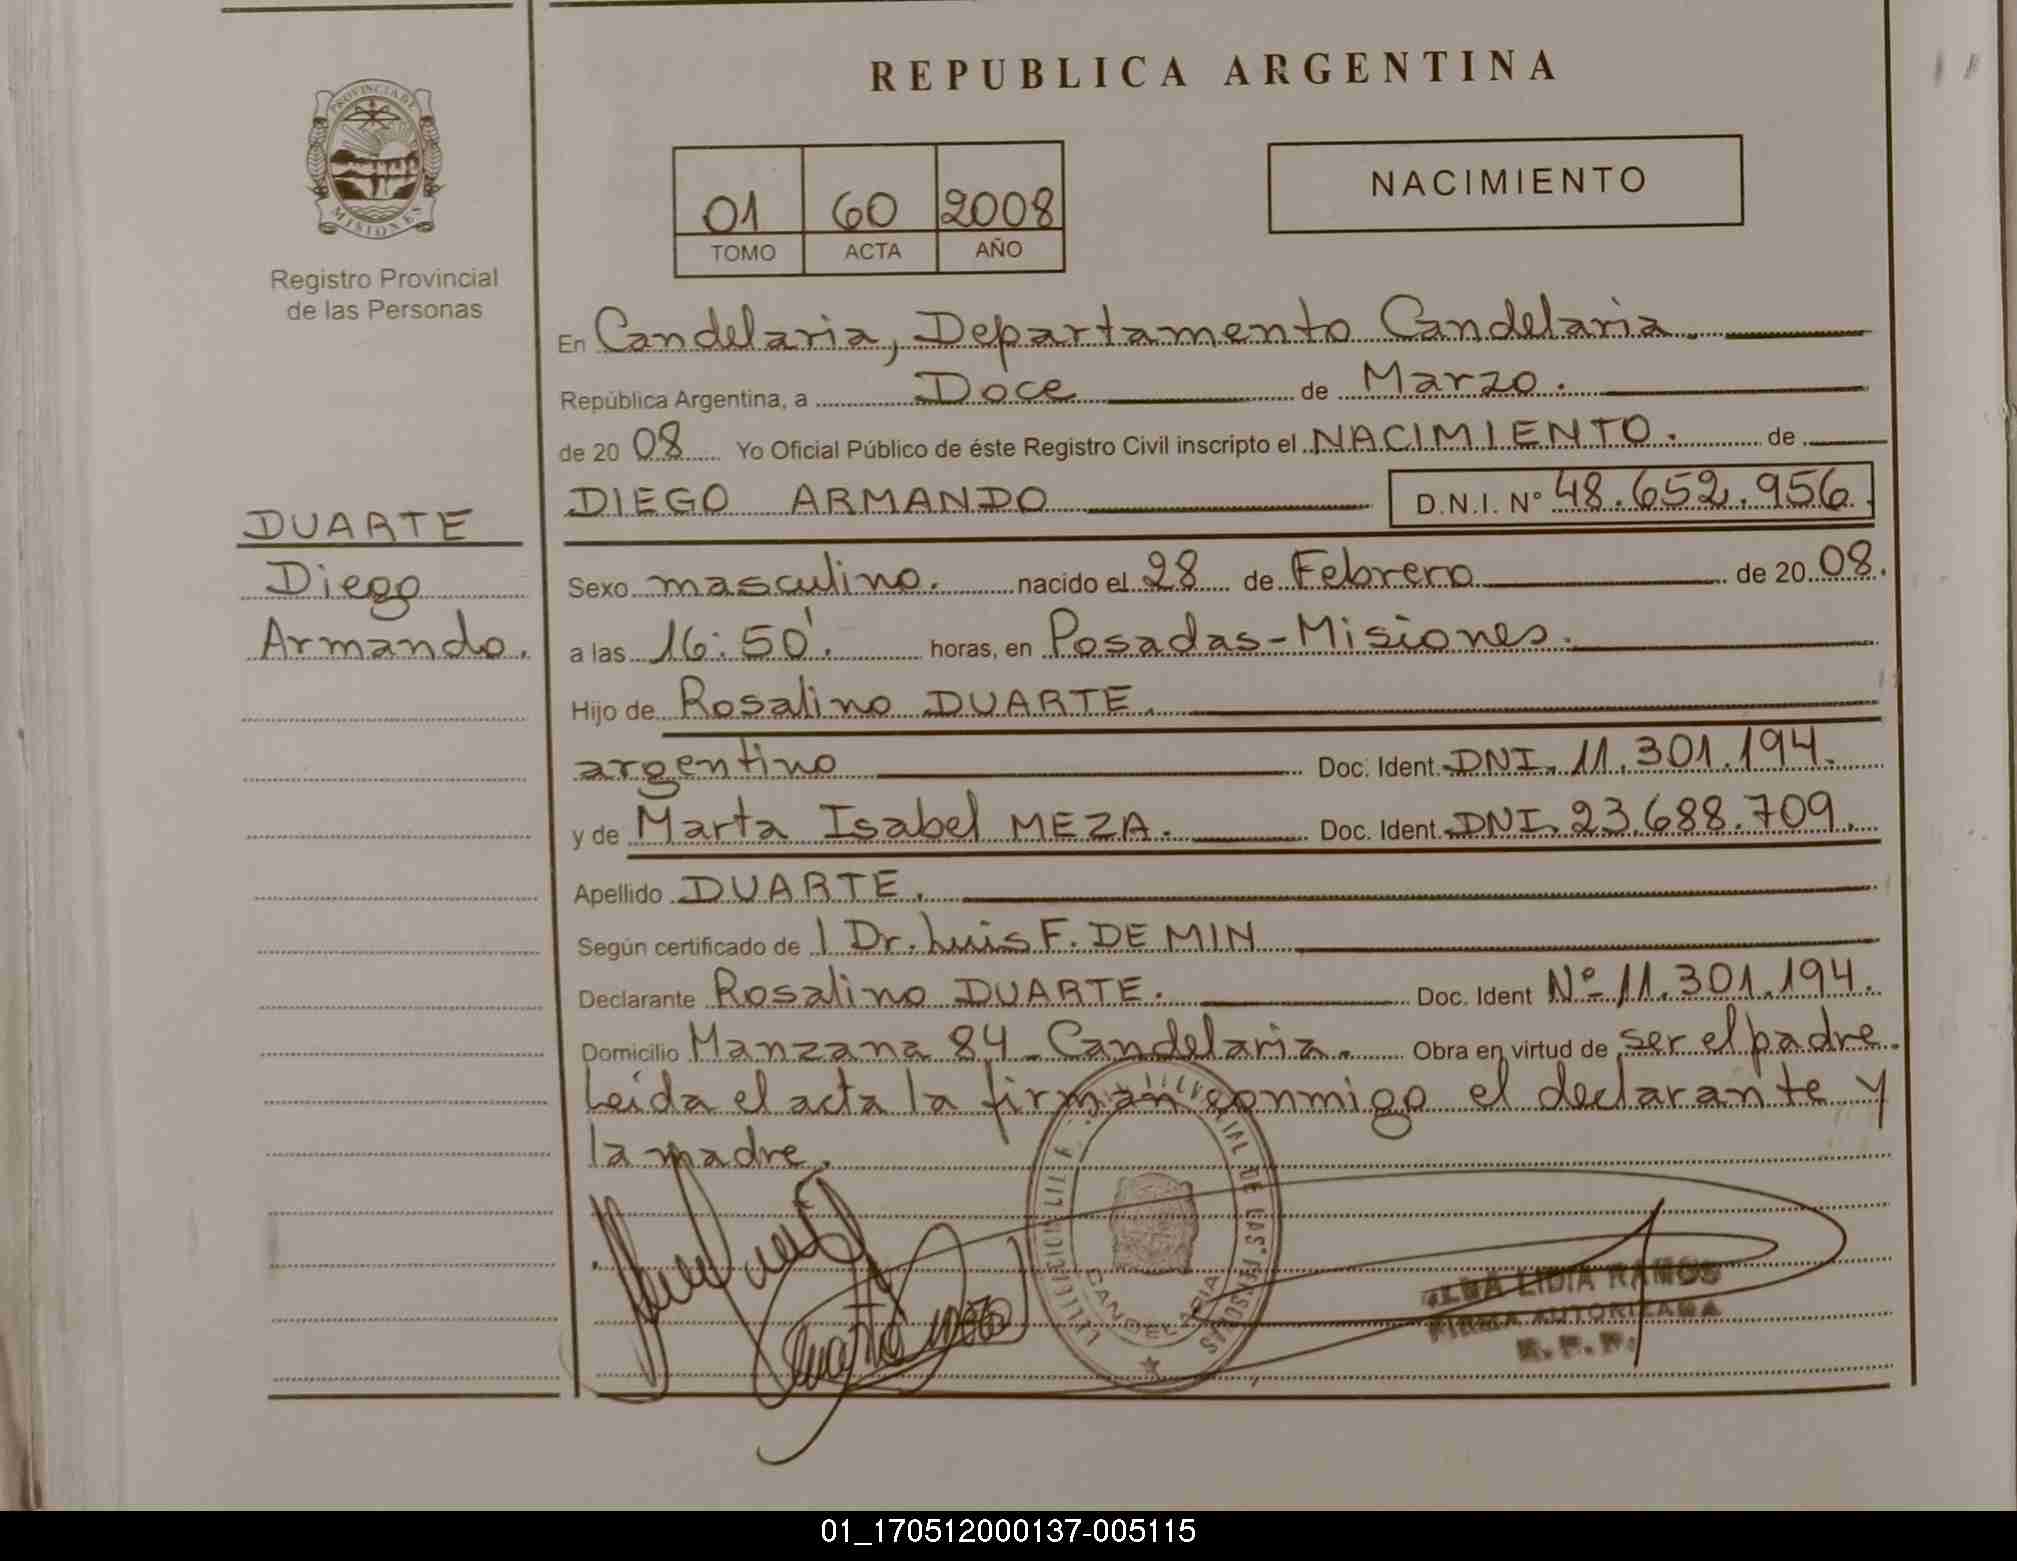 REPUBLICA ARGENTINA
PROVINCIA DE
MISIONES
Registro Provincial
de las Personas
01 60 2008
TOMO ACTA AÑO
NACIMIENTO
En Candelaria, Departamento Candelaria.
República Argentina, a Doce de Marzo.
de 20 08 Yo Oficial Público de éste Registro Civil inscripto el NACIMIENTO. de
DIEGO ARMANDO D.N.I. Nº 48.652.956.
DUARTE
Diego
Armando.
Sexo masculino. nacido el 28 de Febrero de 20 08.
a las 16:50'. horas, en Posadas-Misiones.
Hijo de Rosalino DUARTE.
argentino Doc. Ident. DNI. 11.301.194.
y de Marta Isabel MEZA. Doc. Ident. DNI. 23.688.709.
Apellido DUARTE.
Según certificado de l Dr. Luis F. DE MIN
Declarante Rosalino DUARTE. Doc. Ident Nº 11.301.194.
Domicilio Manzana 84 - Candelaria. Obra en virtud de ser el padre.
Leída el acta la firman conmigo el declarante y
la madre.
DE LAS PERSONAS
CANDELARIA
ALBA LIDIA RAMOS
FIRMA AUTORIZADA
R. P. P.
01_170512000137-005115